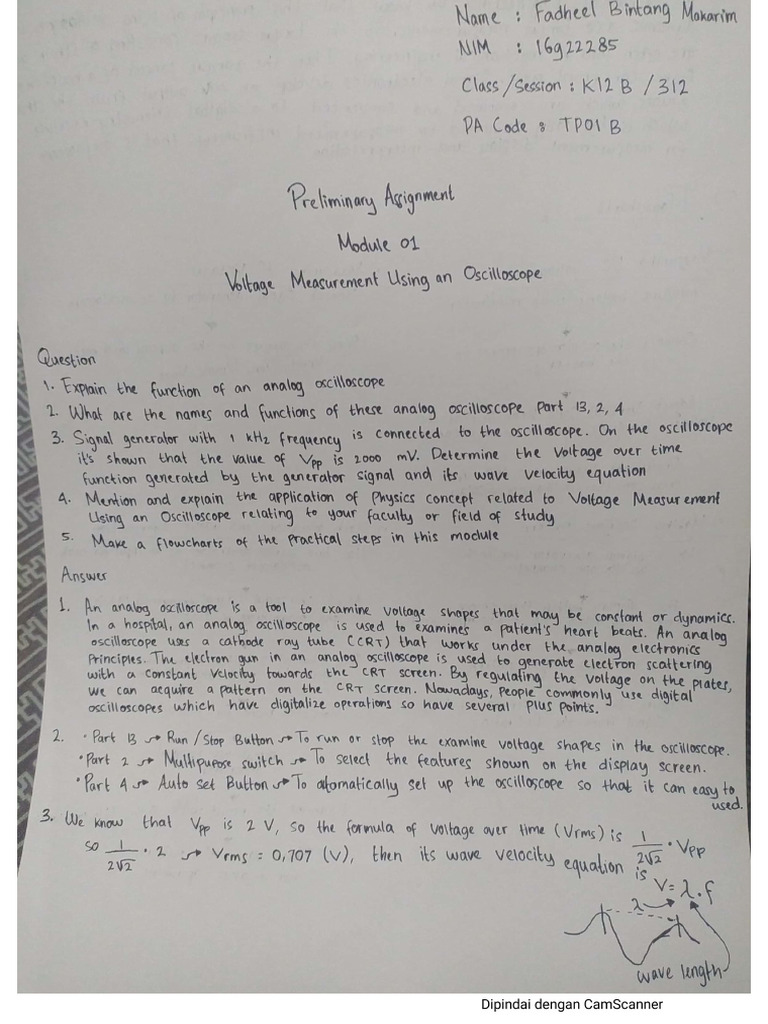 Name : Fadheel Bintang Makarim
NIM : 16922285
Class/Session : K12 B / 312
PA Code : TP01 B
Preliminary Assignment
Module 01
Voltage Measurement Using an Oscilloscope
Question
1. Explain the function of an analog oscilloscope
2. What are the names and functions of these analog oscilloscope Part 13, 2, 4
3. Signal generator with 1 kHz frequency is connected to the oscilloscope. On the oscilloscope
it's shown that the value of Vpp is 2000 mV. Determine the Voltage over time
function generated by the generator signal and its wave velocity equation
4. Mention and explain the application of Physics concept related to Voltage Measurement
Using an Oscilloscope relating to your faculty or field of study
5. Make a flowcharts of the practical steps in this module
Answer
1. An analog oscilloscope is a tool to examine voltage shapes that may be constant or dynamics.
In a hospital, an analog oscilloscope is used to examines a patient's heart beats. An analog
oscilloscope uses a cathode ray tube (CRT) that works under the analog electronics
Principles. The electron gun in an analog oscilloscope is used to generate electron scattering
with a constant velocity towards the CRT screen. By regulating the voltage on the plates,
we can acquire a pattern on the CRT screen. Nowadays, people commonly use digital
oscilloscopes which have digitalize operations so have several plus points.
2. • Part 13 → Run / Stop Button → To run or stop the examine voltage shapes in the oscilloscope.
• Part 2 → Multipupose switch → To select the features shown on the display screen.
• Part 4 → Auto Set Button → To atomatically set up the oscilloscope so that it can easy to
used.
3. We know that Vpp is 2 V, so the formula of voltage over time (Vrms) is 1/2√2 • Vpp
so 1/2√2 • 2 → Vrms = 0,707 (V), then its wave velocity equation is
V = λ . f
λ
wave length
Dipindai dengan CamScanner